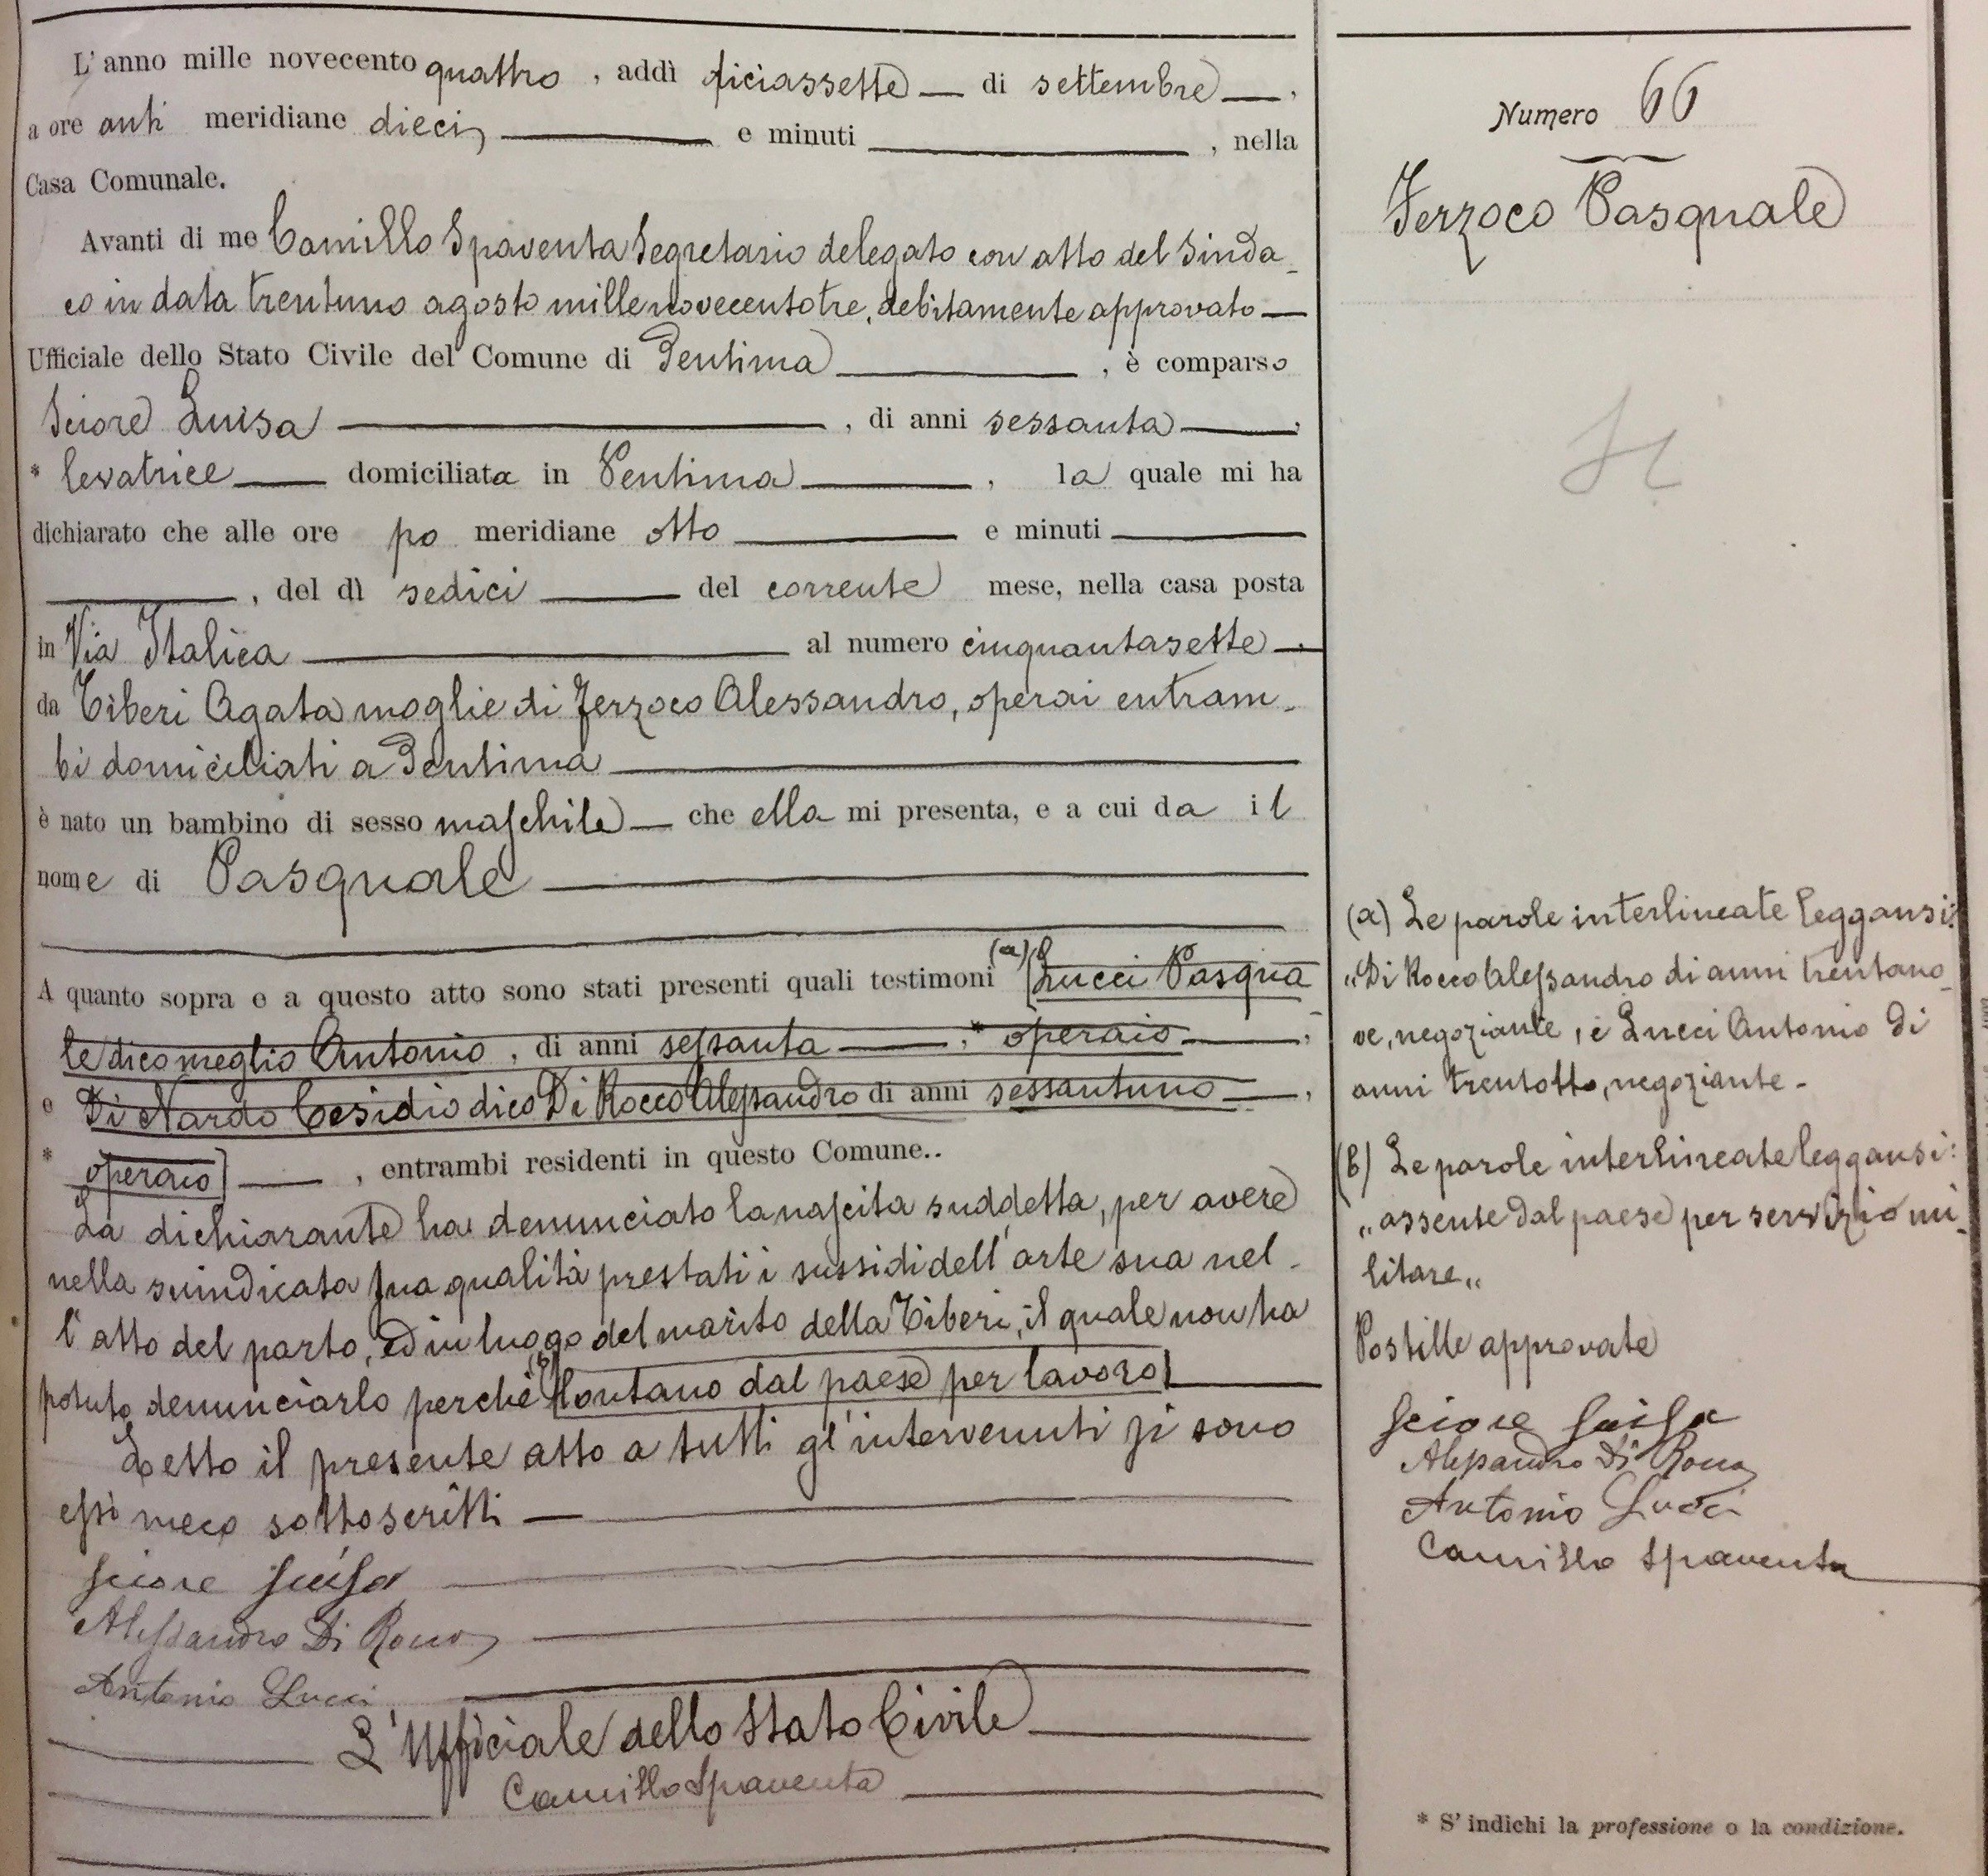 L'anno mille novecento quattro, addì diciassette di settembre,
a ore anti meridiane dieci, e minuti , nella
Casa Comunale.
Avanti di me Camillo Spaventa Segretario delegato con atto del Sinda-
co in data trentuno agosto millenovecentotre, debitamente approvato
Ufficiale dello Stato Civile del Comune di Pentima , è comparso
Sciore Luisa , di anni sessanta ,
* levatrice domiciliata in Pentima , la quale mi ha
dichiarato che alle ore po meridiane otto e minuti
, del dì sedici del corrente mese, nella casa posta
in Via Italica al numero cinquantasette ,
da Tiberi Agata moglie di Terzoco Alessandro, operai entram-
bi domiciliati a Pentima
è nato un bambino di sesso maschile che ella mi presenta, e a cui da il
nome di Pasquale
A quanto sopra e a questo atto sono stati presenti quali testimoni (a) [Lucci Pasqua-
le dico meglio Antonio, di anni sessanta , * operaio ,
e Di Nardo Cesidio dico Di Rocco Alessandro di anni sessantuno ,
* operaio] , entrambi residenti in questo Comune..
La dichiarante ha denunciato la nascita suddetta, per avere
nella suindicata sua qualità prestati i sussidi dell'arte sua nel-
l'atto del parto, ed in luogo del marito della Tiberi, il quale non ha
potuto denunciarlo perchè (b) [lontano dal paese per lavoro]
Letto il presente atto a tutti gl'intervenuti si sono
essi meco sottoscritti
Sciore Luisa
Alessandro Di Rocco
Antonio Lucci
L'Ufficiale dello Stato Civile
Camillo Spaventa
Numero 66
Terzoco Pasquale
(a) Le parole interlineate leggansi:
„Di Rocco Alessandro di anni trentano-
ve, negoziante, e Lucci Antonio di
anni trentotto, negoziante-
(b) Le parole interlineate leggansi:
„assente dal paese per servizio mi-
litare„
Postille approvate
Sciore Luisa
Alessandro Di Rocco
Antonio Lucci
Camillo Spaventa
* S'indichi la professione o la condizione.